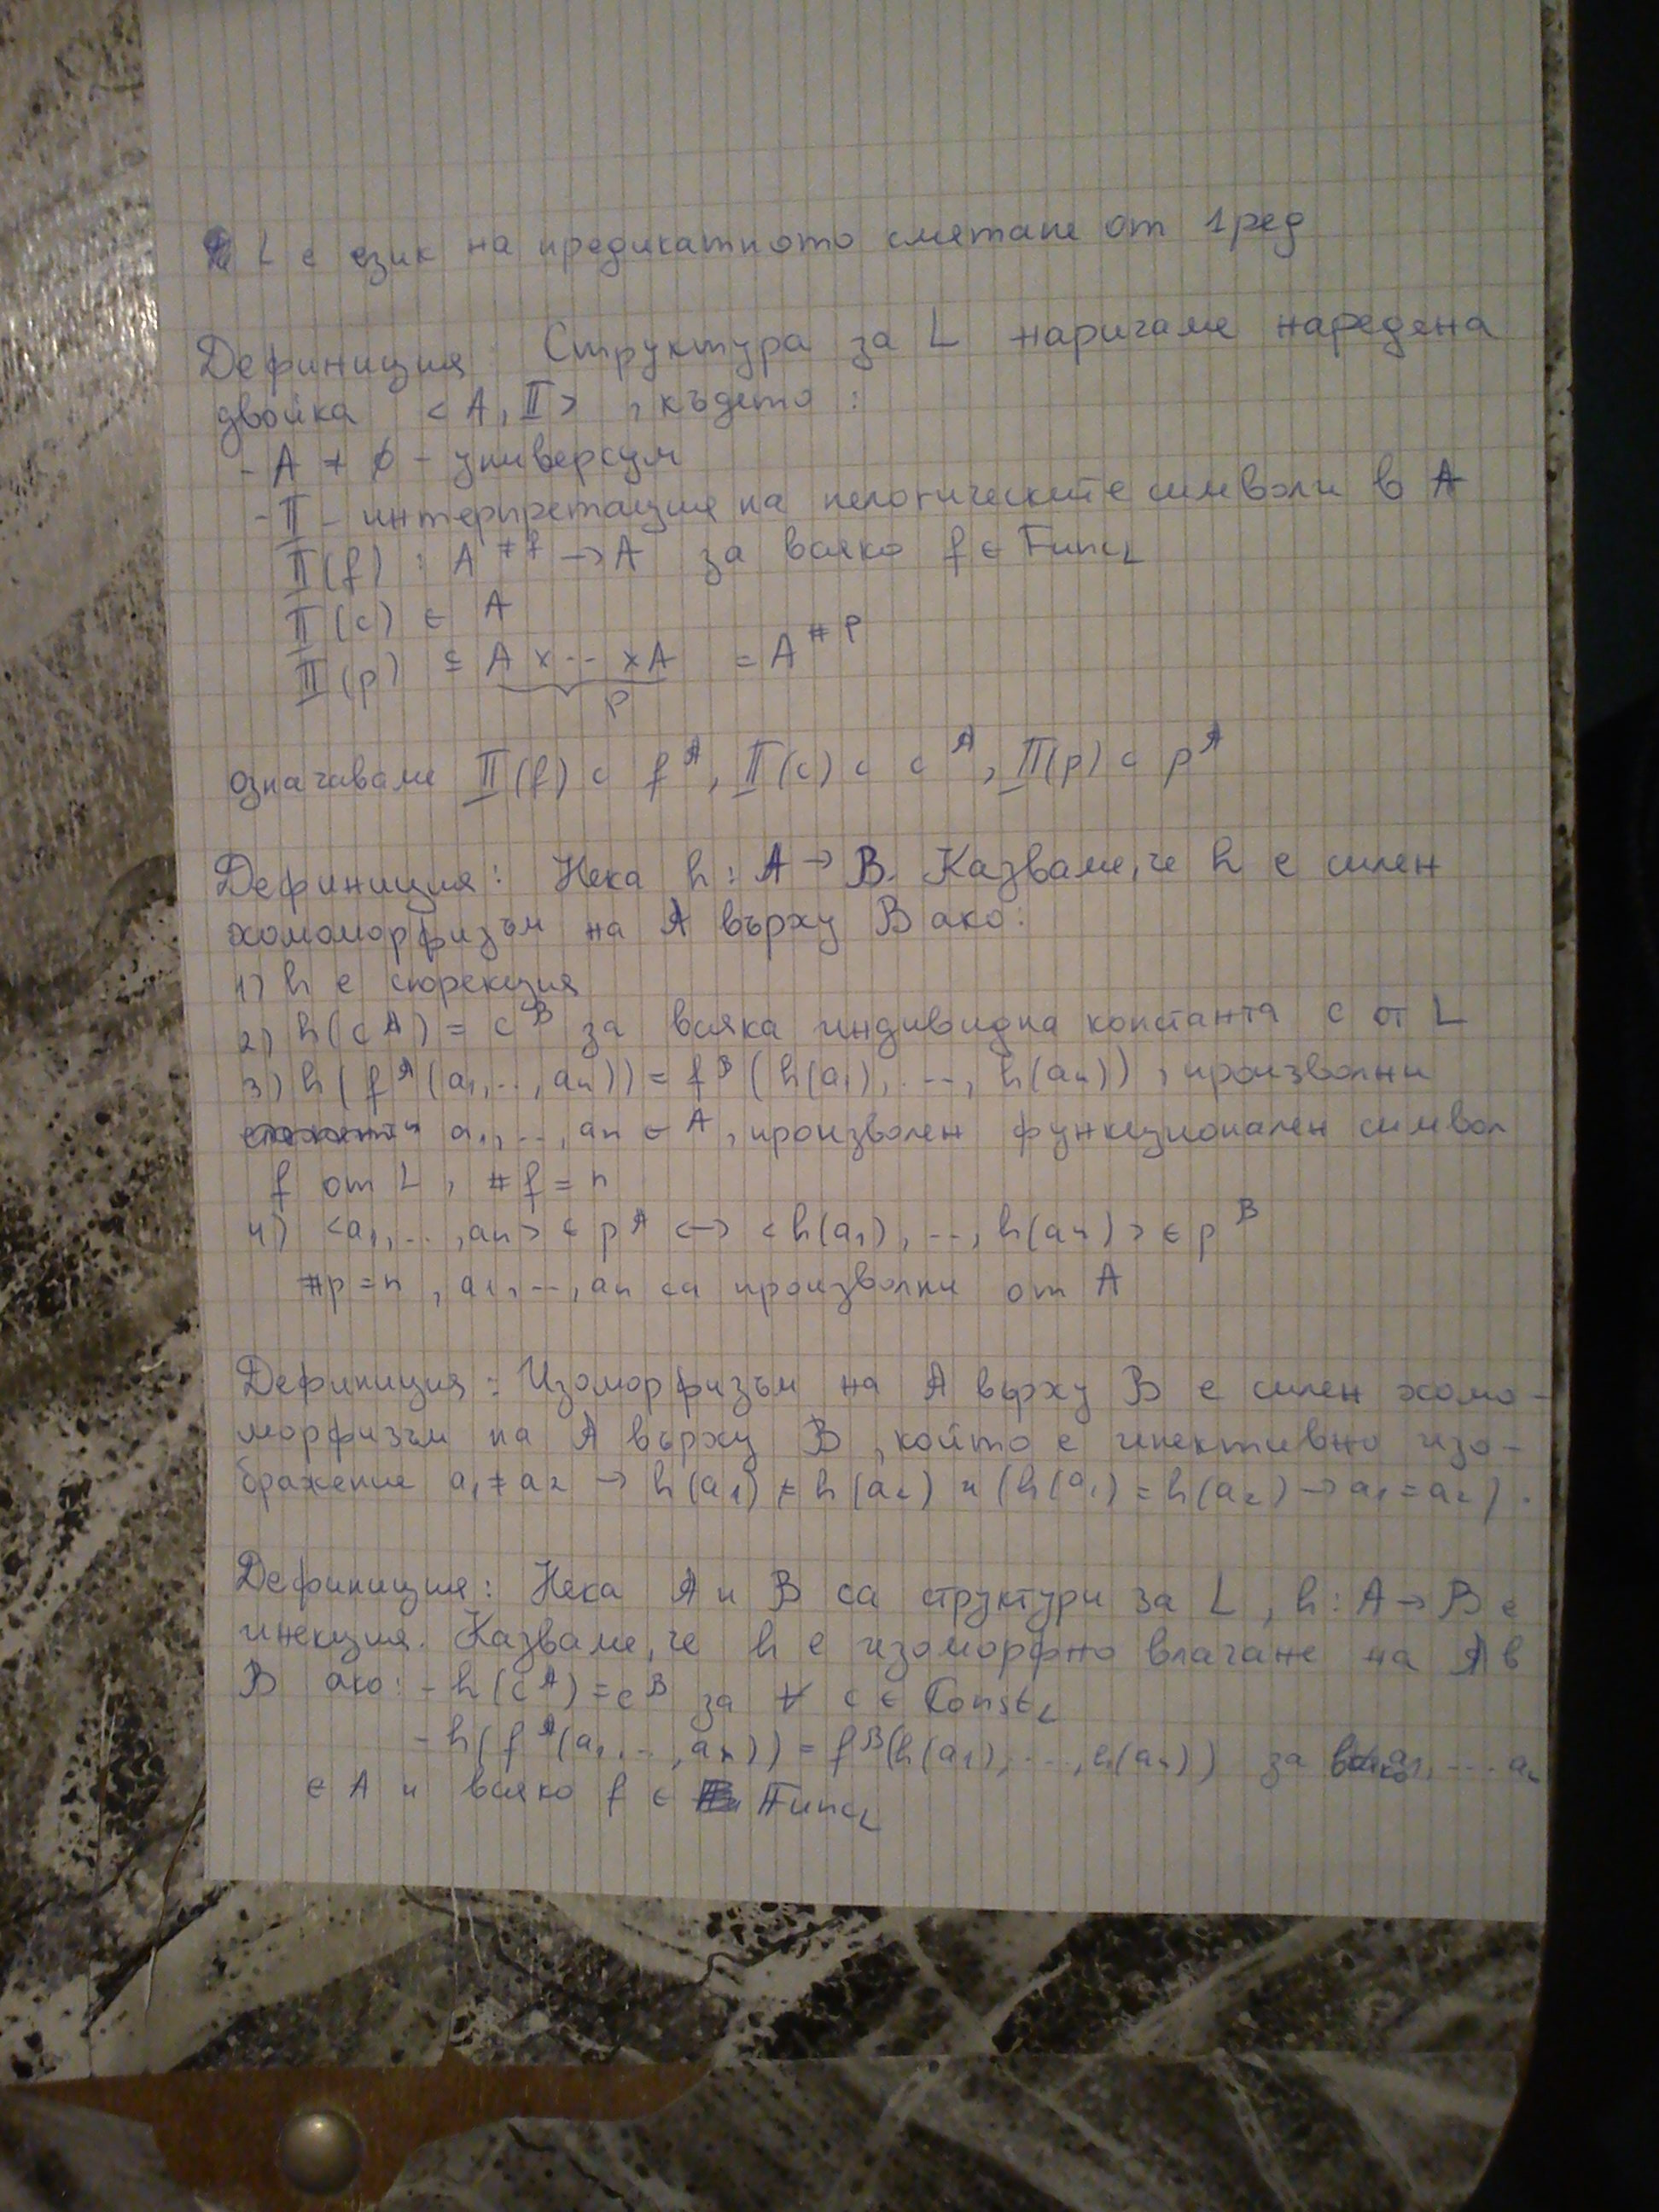 L е език на предикатното смятане от 1 ред
Дефиниция : Структура за L наричаме наредена
двойка <A, II> , където :
- A ≠ ∅ - универсум
- II - интерпретация на нелогическите символи в A
II(f) : A^#f → A за всяко f ∈ Func_L
II(c) ∈ A
II(p) ⊆ A x ... x A = A^#p
p
означаваме II(f) с f^A, II(c) с c^A, II(p) с p^A
Дефиниция : Нека h : A → B. Казваме, че h е силен
хомоморфизъм на A върху B ако:
1) h е сюрекция
2) h(c^A) = c^B за всяка индивидна константа c от L
3) h(f^A(a1,..,an)) = f^B(h(a1),...,h(an)) , произволни
a1,..,an ∈ A, произволен функционален символ
f от L , #f = n
4) <a1,..,an> ∈ p^A <-> <h(a1),..,h(an)> ∈ p^B
#p = n , a1,..,an са произволни от A
Дефиниция : Изоморфизъм на A върху B е силен хомо-
морфизъм на A върху B , който е инективно изо-
бражение a1 ≠ a2 → h(a1) ≠ h(a2) и (h(a1) = h(a2) → a1 = a2) .
Дефиниция : Нека A и B са структури за L , h : A → B е
инекция. Казваме, че h е изоморфно влагане на A в
B ако: - h(c^A) = c^B за ∀ c ∈ Const_L
- h(f^A(a1,..,an)) = f^B(h(a1),...,h(an)) за a1,...an
∈ A и всяко f ∈ Func_L